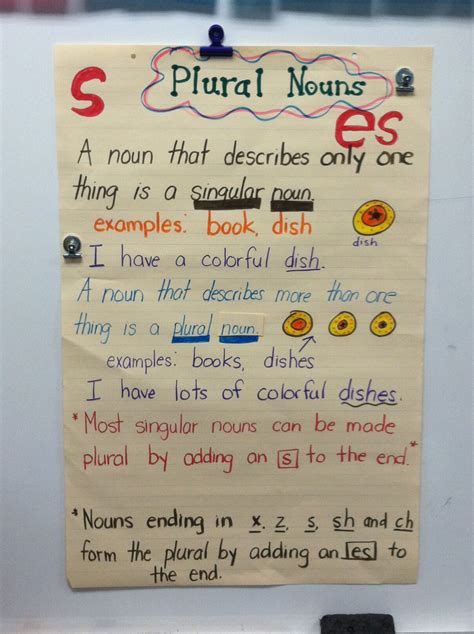 s Plural Nouns es
A noun that describes only one
thing is a singular noun.
examples: book, dish
dish
I have a colorful dish.
A noun that describes more than one
thing is a plural noun.
examples: books, dishes
I have lots of colorful dishes.
*Most singular nouns can be made
plural by adding an s to the end.*
*Nouns ending in x, z, s, sh and ch
form the plural by adding an es to
the end.